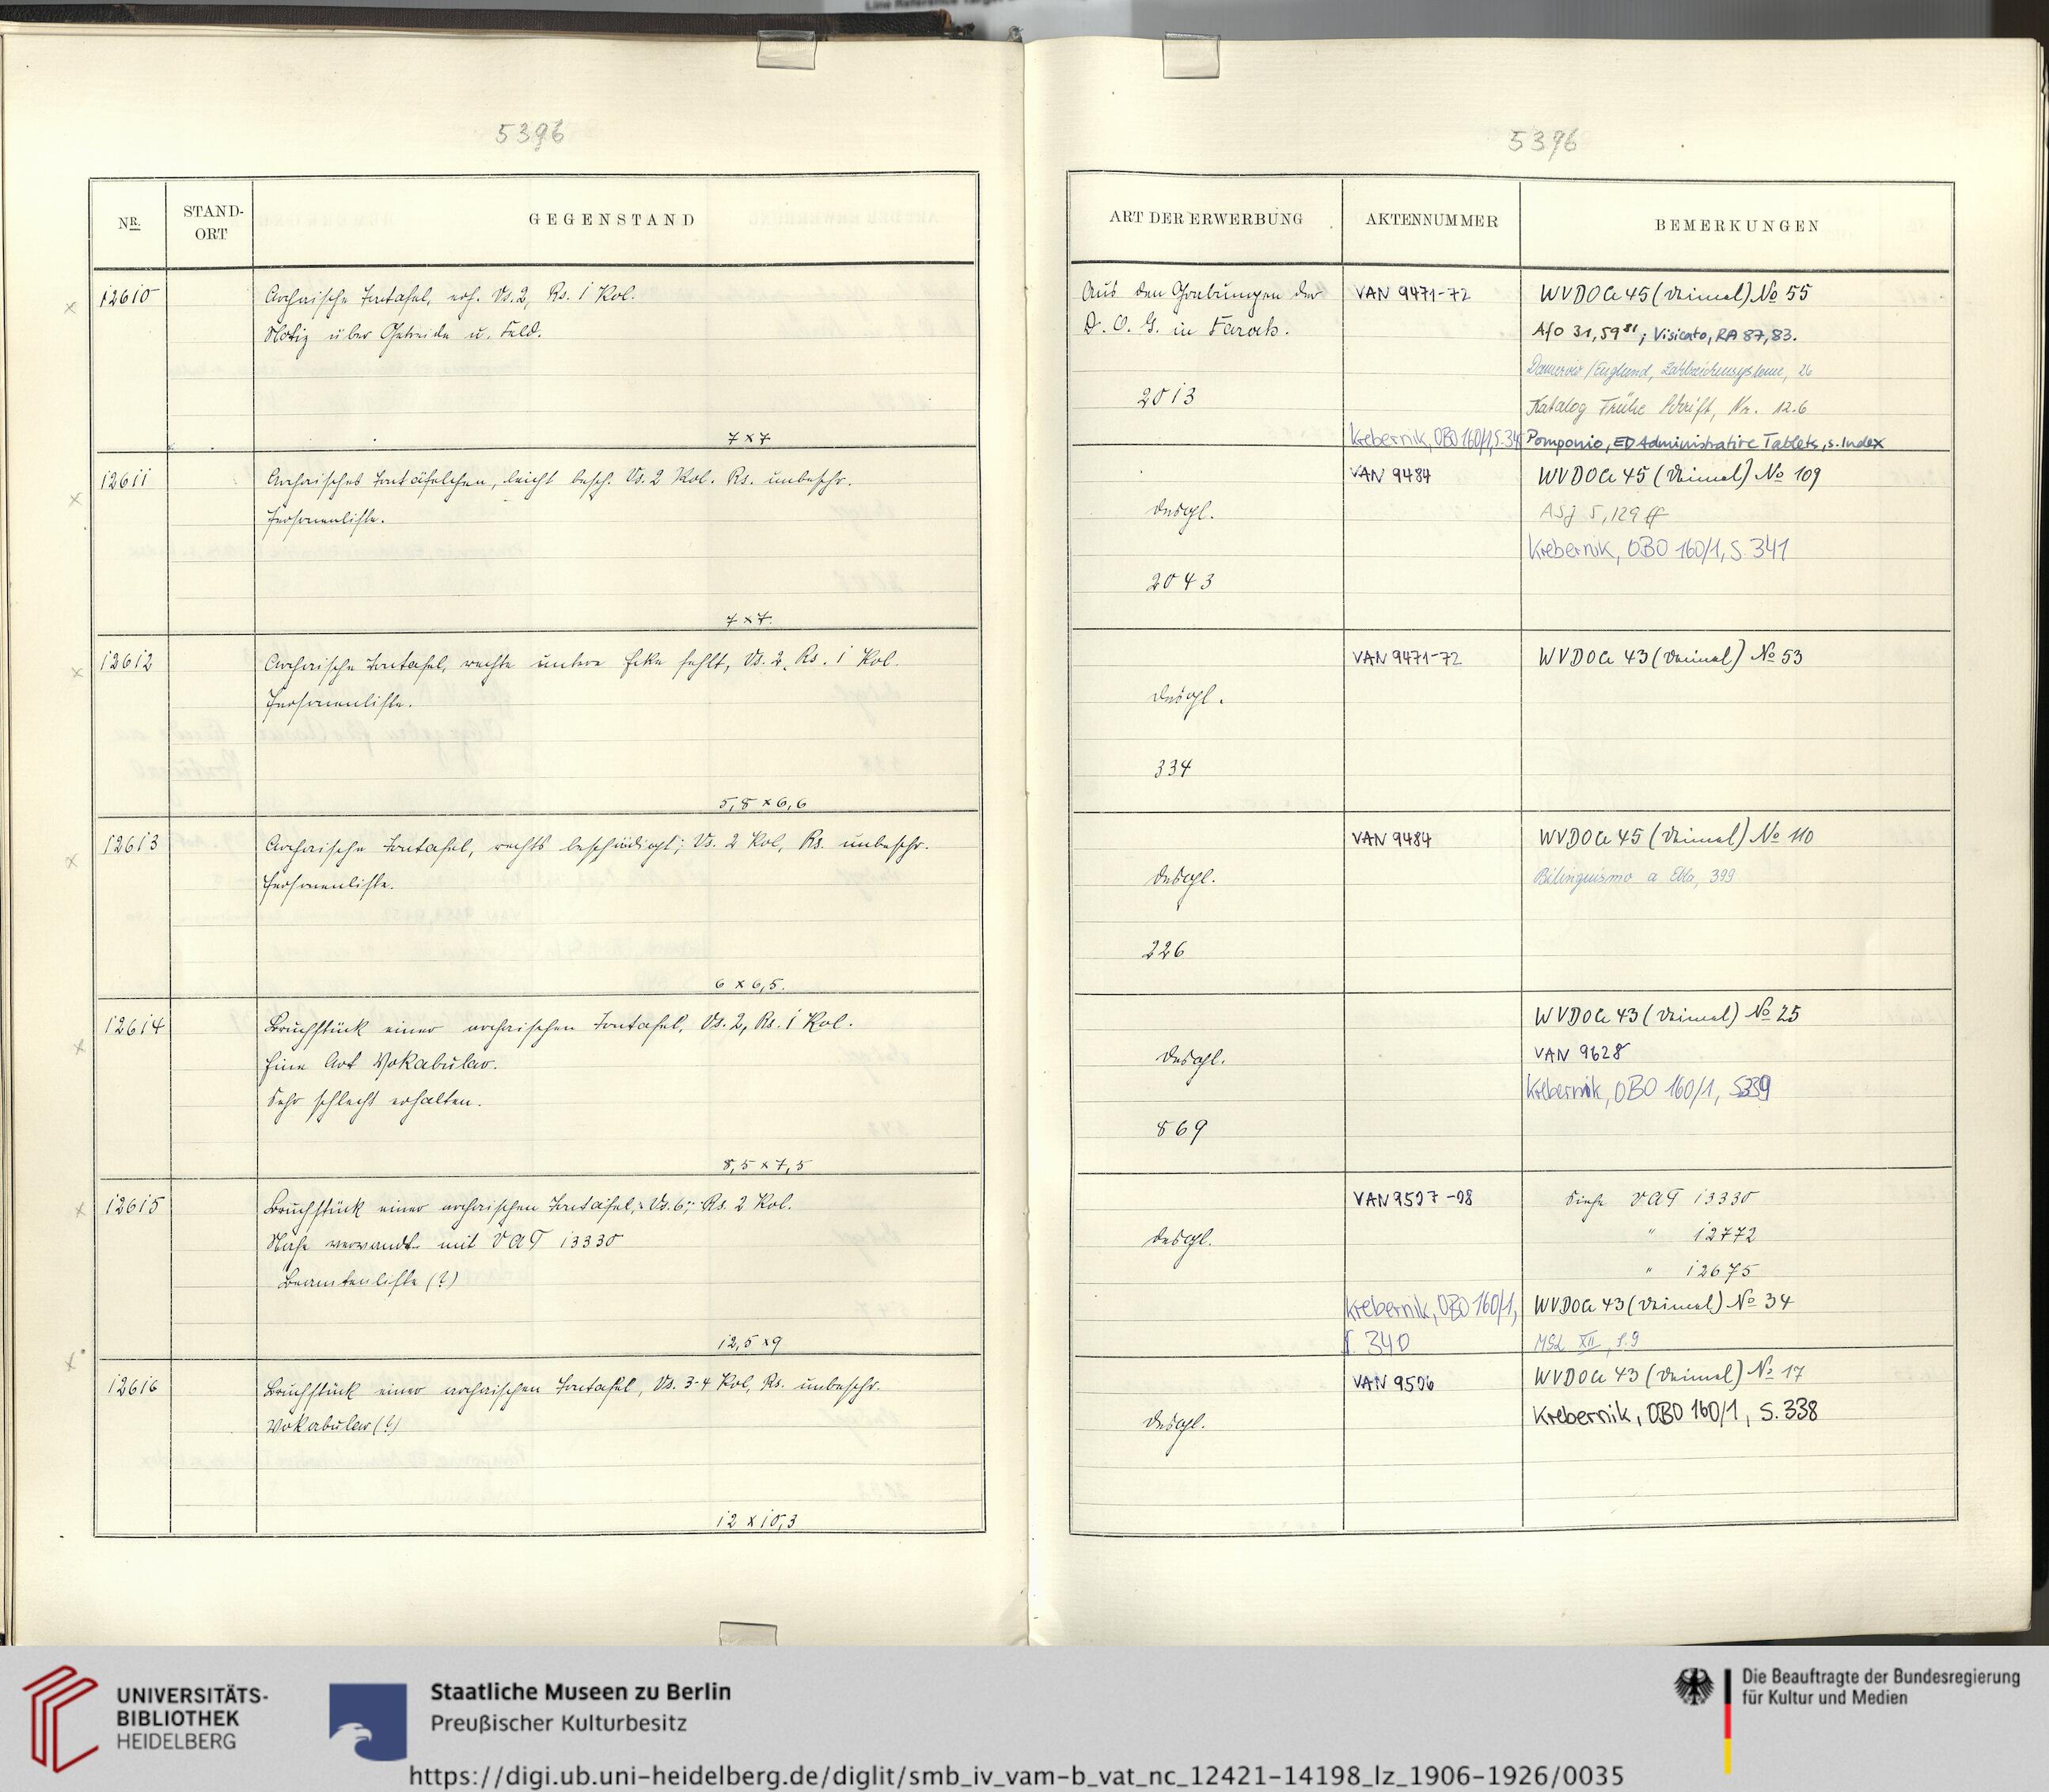 5396
5396
NR.
STAND-
ORT
GEGENSTAND
ART DER ERWERBUNG
AKTENNUMMER
BEMERKUNGEN
12610
Archaische Tontafel, erh. Vs. 2, Rs. 1 Kol.
Notiz über Getreide u. Feld.
7 x 7
Aus den Grabungen der
D. O. G. in Farah.
2013
VAN 9471-72
Krebernik, OBO 160/1, S. 34
WVDOG 45 (Deimel) No 55
AfO 31, 59 81; Visicato, RA 87, 83.
Damerow/Englund, Zahlzeichensysteme, 26
Katalog Frühe Schrift, Nr. 12.6
Pomponio, ED Administrative Tablets, s. Index
12611
Archaisches Tontäfelchen, leicht besch. Vs. 2 Kol. Rs. unbeschr.
Personenliste.
7 x 7.
desgl.
2043
VAN 9484
WVDOG 45 (Deimel) No 109
ASJ 5, 129 ff
Krebernik, OBO 160/1, S. 341
12612
Archaische Tontafel, rechte untere Ecke fehlt, Vs. 2, Rs. 1 Kol.
Personenliste.
5,8 x 6,6
desgl.
334
VAN 9471-72
WVDOG 43 (Deimel) No 53
12613
Archaische Tontafel, rechts beschädigt; Vs. 2 Kol, Rs. unbeschr.
Personenliste.
6 x 6,5.
desgl.
226
VAN 9484
WVDOG 45 (Deimel) No 110
Bilinguismo a Ebla, 399
12614
Bruchstück einer archaischen Tontafel, Vs. 2, Rs. 1 Kol.
Eine Art Vokabular.
Sehr schlecht erhalten.
8,5 x 7,5
desgl.
869
WVDOG 43 (Deimel) No 25
VAN 9628
Krebernik, OBO 160/1, S339
12615
Bruchstück einer archaischen Tontafel, Vs. 6, Rs. 2 Kol.
Nahe verwandt mit VAT 13330
Beamtenliste (?)
12,5 x 9
desgl.
VAN 9507-08
Krebernik, OBO 160/1,
S. 340
Siehe VAT 13330
" 12772
" 12675
WVDOG 43 (Deimel) No 34
MSL XII, S. 9
12616
Bruchstück einer archaischen Tontafel, Vs. 3-4 Kol, Rs. unbeschr.
Vokabular (?)
12 x 10,3
desgl.
VAN 9506
WVDOG 43 (Deimel) No 17
Krebernik, OBO 160/1, S. 338
UNIVERSITÄTS-
BIBLIOTHEK
HEIDELBERG
Staatliche Museen zu Berlin
Preußischer Kulturbesitz
Die Beauftragte der Bundesregierung
für Kultur und Medien
https://digi.ub.uni-heidelberg.de/diglit/smb_iv_vam-b_vat_nc_12421-14198_lz_1906-1926/0035